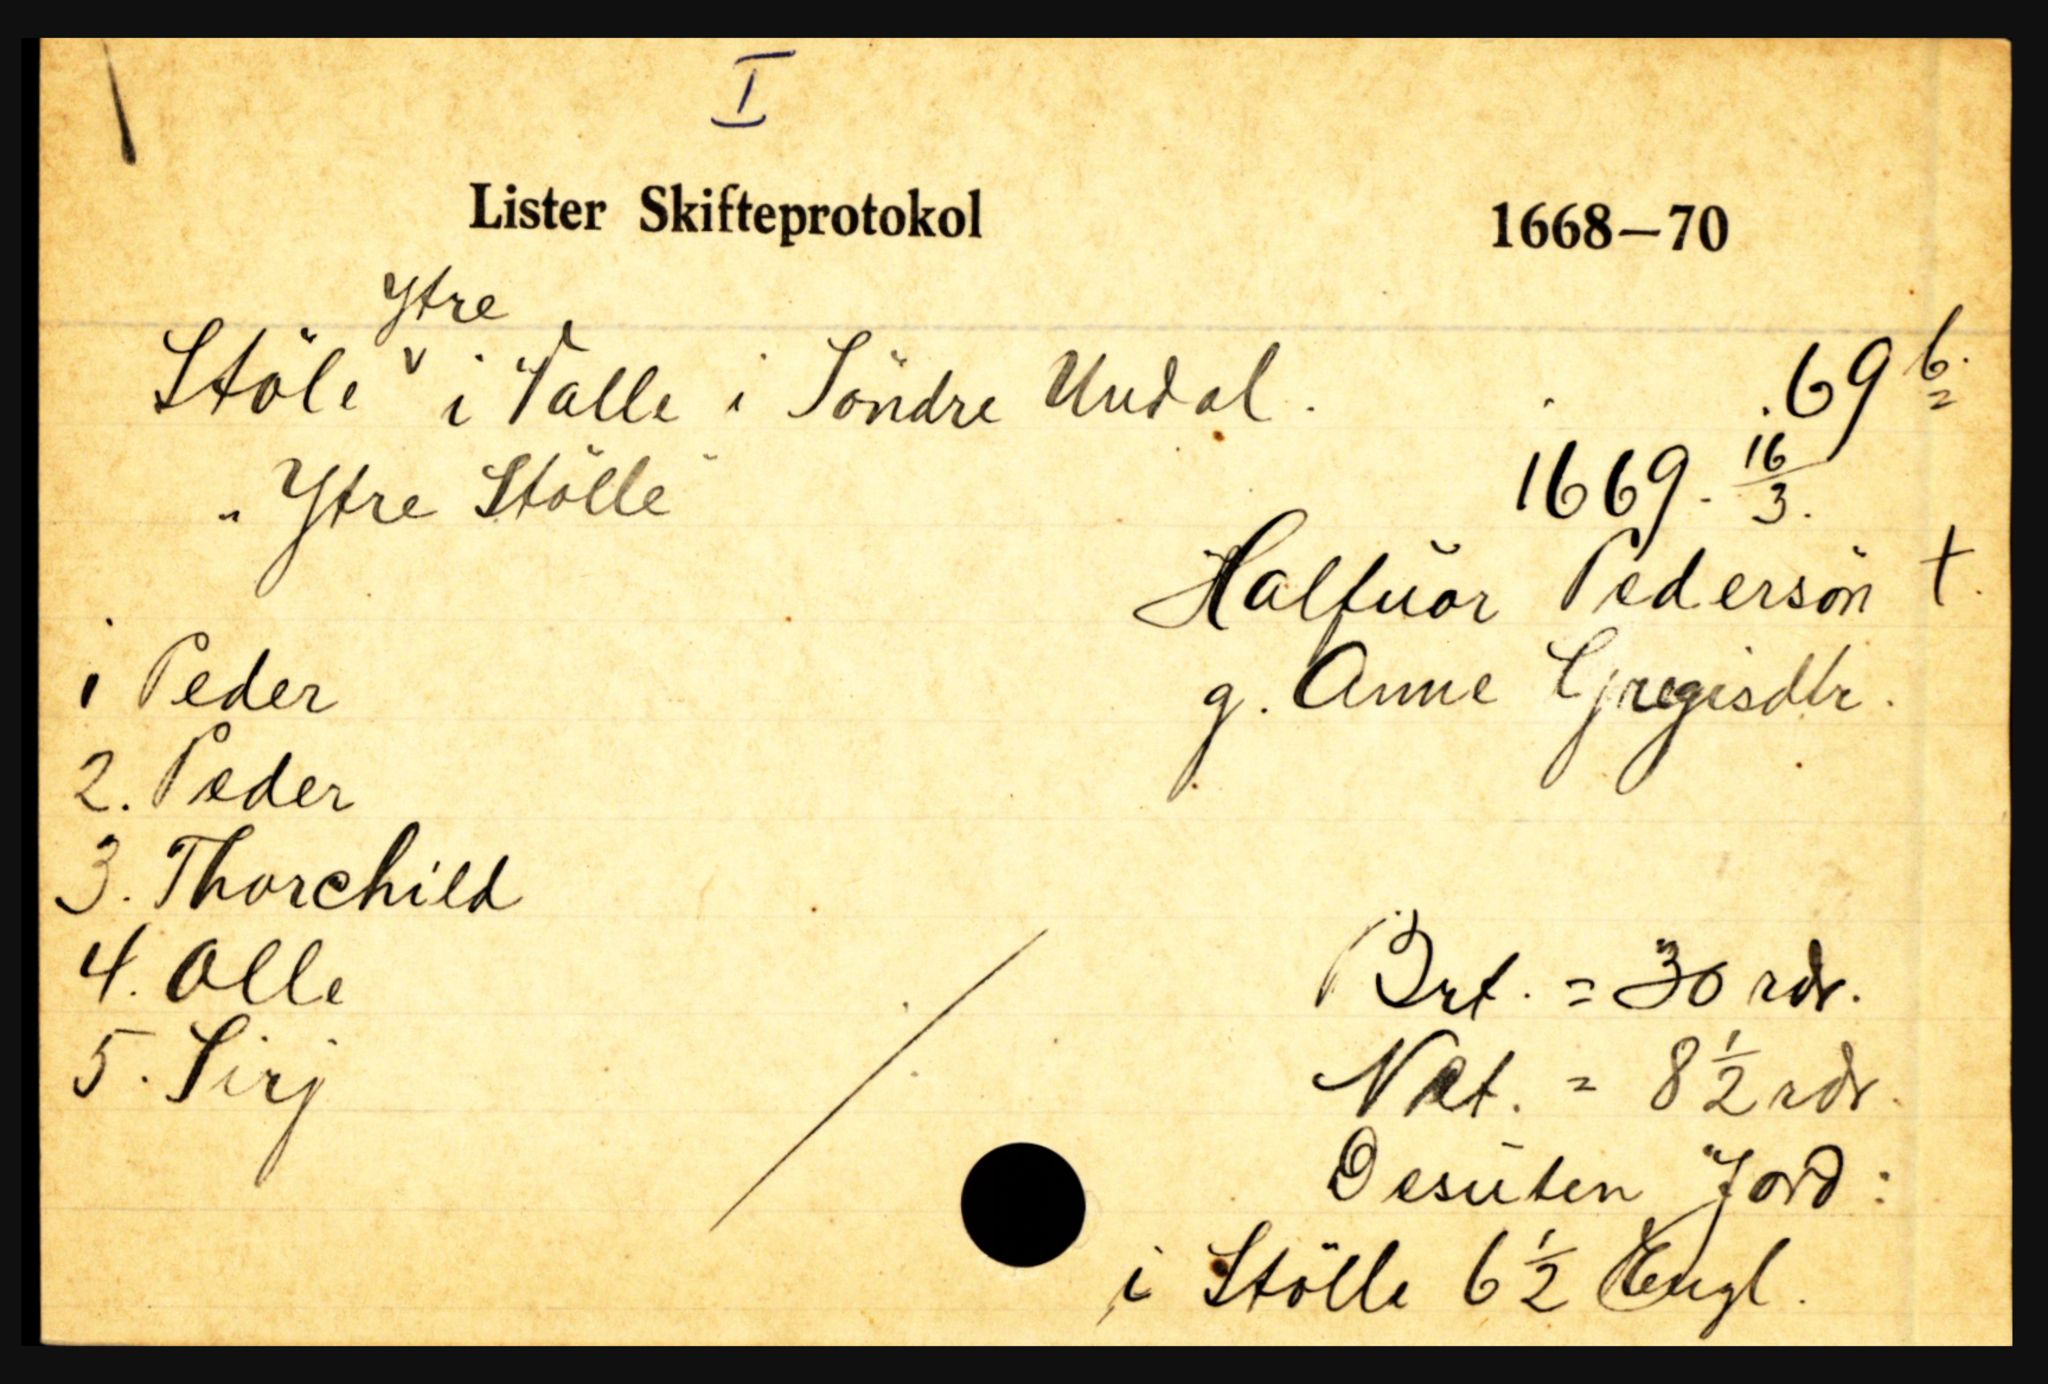 I
Lister Skifteprotokol 1668—70
Ytre
Stöle v i Valle i Söndre Undal. 69 b.
„Ytre Stölle" 1669. 16/3.
Halfuor Pedersön †.
g. Anne Gregisdtr.
1 Peder
2. Peder
3. Thorchild
4. Olle
5. Sirj
Brt. = 30 rdr.
Net. = 8 1/2 rdr.
Desuten Jord:
i Stölle 6 1/2 Engl.